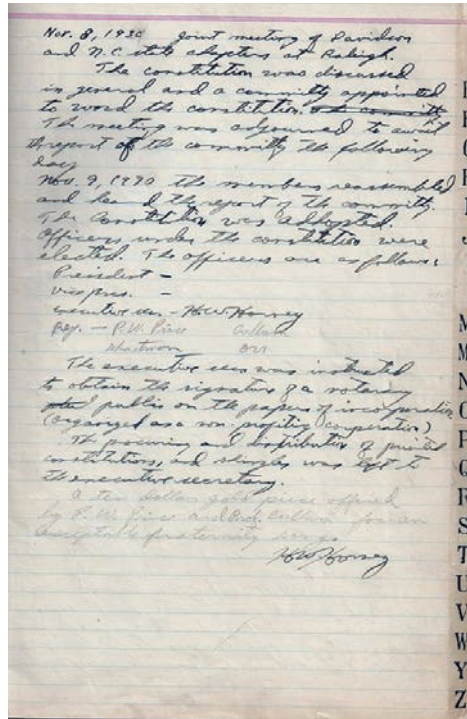 Nov. 8, 1930 Joint meeting of Davidson
and N.C. State chapters at Raleigh.
The constitution was discussed
in general and a committy appointed
to word the constitution. the committy
The meeting was adjourned to await
the report of the committy the following
day
Nov. 9, 1930 the members reassembled
and heard the report of the committy.
The Constitution was adopted.
Officers under the constitution were
elected. The officers are as follows:
President -
vice pres. -
executive sec. - H.W. Horney
- P.W. Pirce
The executive sec was instructed
to obtain the signature of a notary
public on the papers of incorporation
(organized as a non-profiting corporation)
The procuring and distribution of printed
constitutions, and shingles was left to
the executive secretary.
a ten dollar gold piece offered
by P.W. Pirce and Prof. for an
fraternity song.
H.W. Horney
M
N
O
P
Q
R
S
T
U
V
W
Y
Z